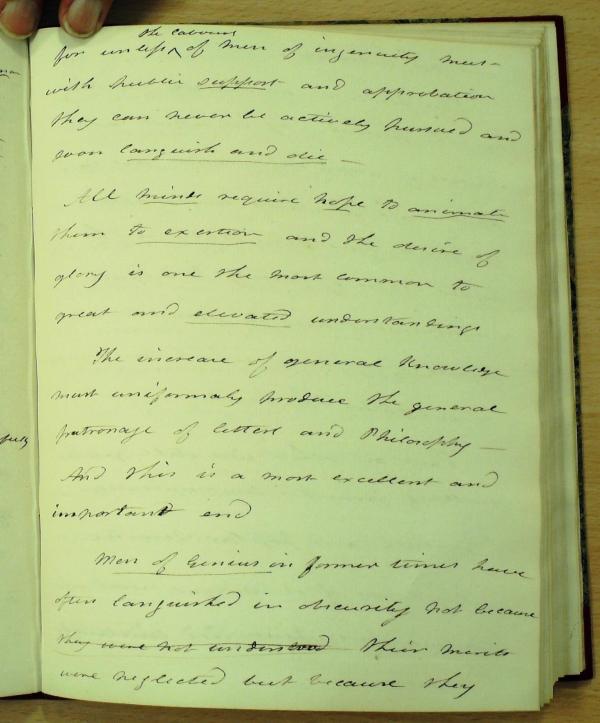 the labours
for unless of Men of ingenuity meet
with public support and approbation
they can never be actively pursued and
soon languish and die —
All minds require hope to animate
them to exertion and the desire of
glory is one the most common to
great and elevated understandings
The increase of general Knowledge
must uniformaly produce the general
patronage of letters and Philosophy —
And this is a most excellent and
important end
Men of Genius in former times have
often languished in obscurity not because
they were not understood their merits
were neglected but because they